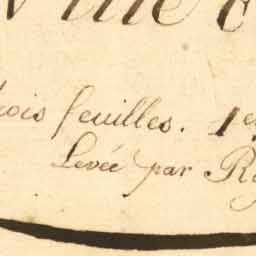 Ville
rois feuilles. 1er
Levée par R